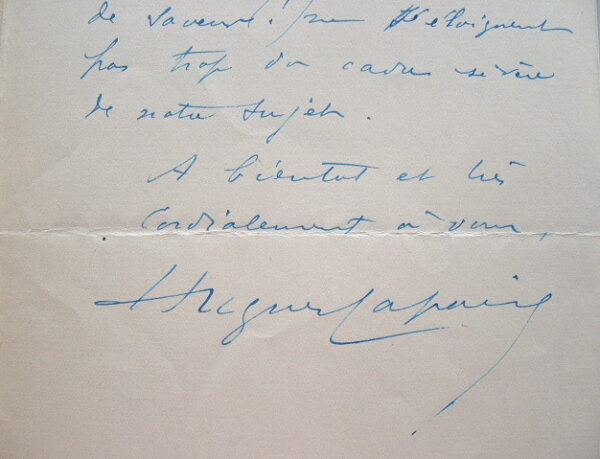 de saveur! ne s'éloignent
pas trop du cadre sévère
de notre sujet.
A bientot et très
Cordialement à vous,
Hugues Lapaire